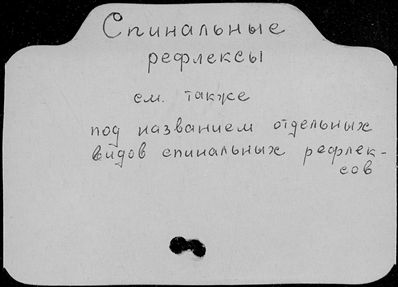 Спинальные
рефлексы
см. также
под названием отдельных
видов спинальных рефлек-
сов